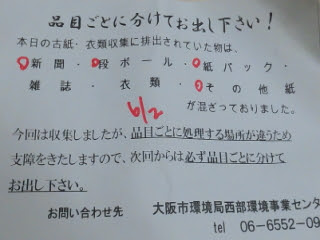 品目ごとに分けてお出し下さい！
本日の古紙・衣類収集に排出されていた物は、
新聞・段ボール・紙パック・
雑誌・衣類・その他紙
が混ざっておりました。
6/2
今回は収集しましたが、品目ごとに処理する場所が違うため
支障をきたしますので、次回からは必ず品目ごとに分けて
お出し下さい。
お問い合わせ先 大阪市環境局西部環境事業センタ
06-6552-09